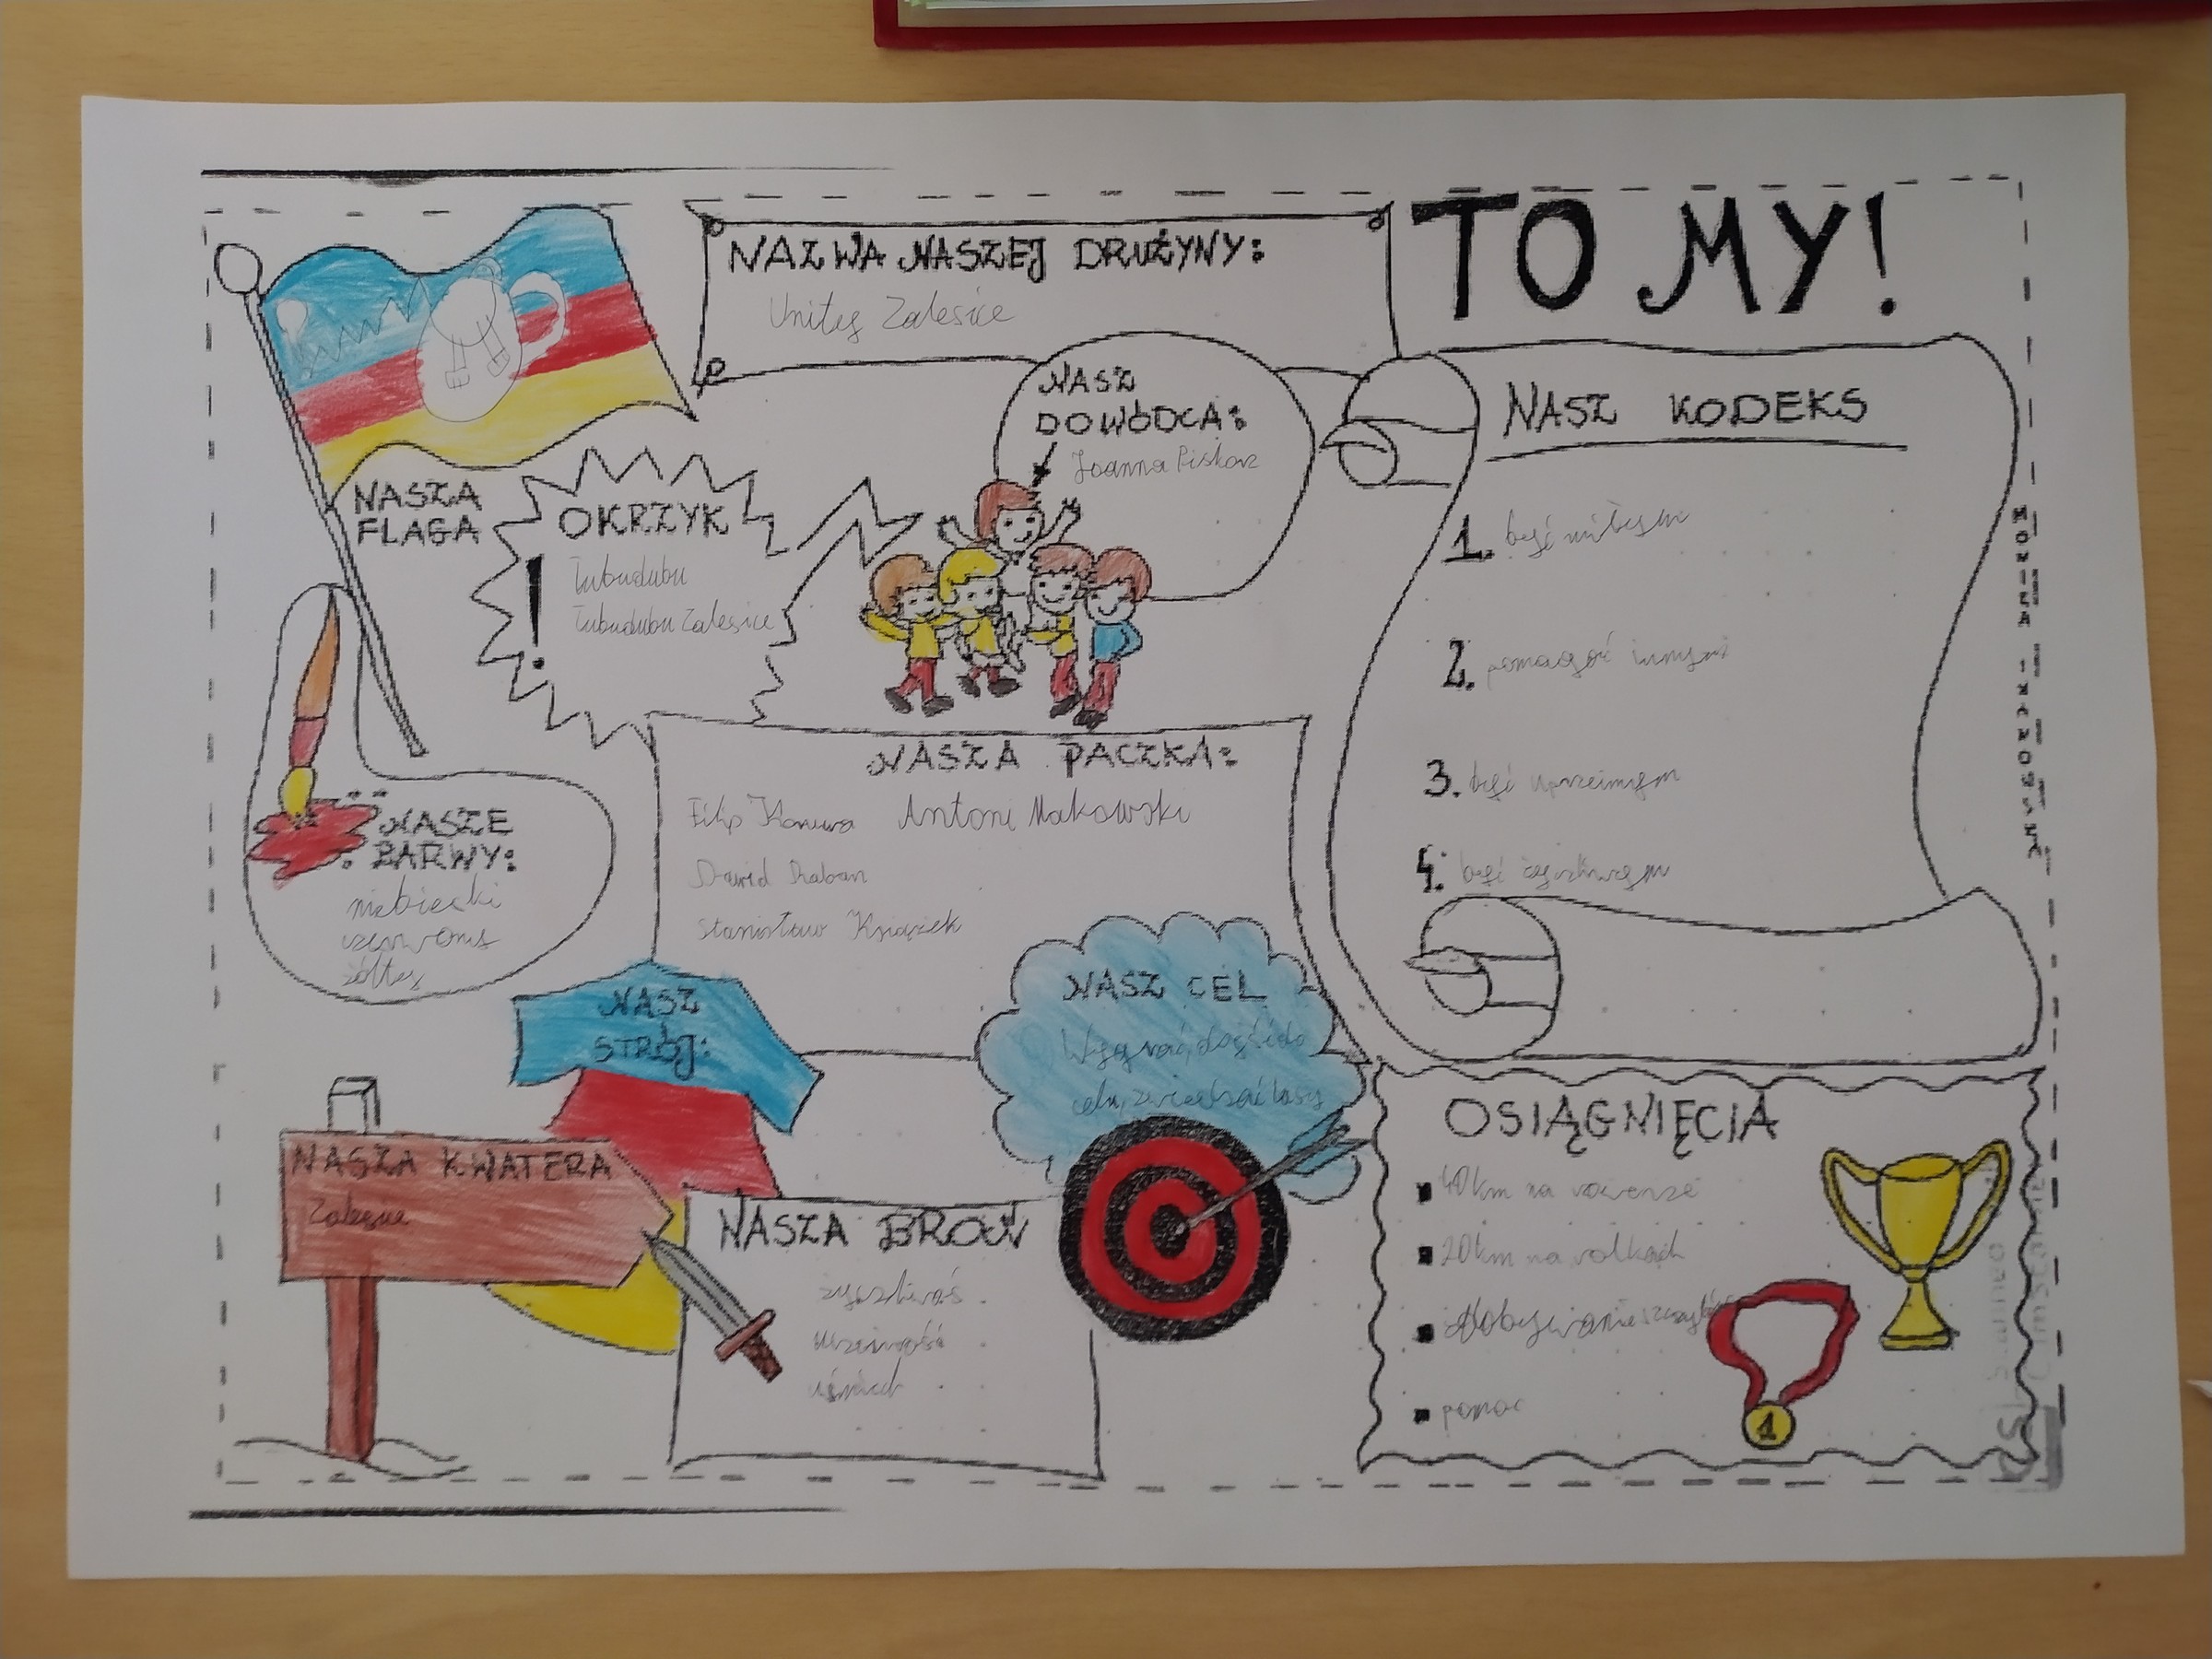 TO MY!
NAZWA NASZEJ DRUŻYNY:
Unitej Zalesice
NASZ
DOWÓDCA:
Joanna Piskorz
NASZA
FLAGA
OKRZYK
!
Łubudubu
Łubudubu Zalesice
NASZE
BARWY:
niebieski
czerwony
żółty
NASZA PACZKA:
Filip Antoni Makowski
Dawid Raban
Stanisław Książek
NASZ KODEKS
1. być miłym
2. pomagać innym
3. być uprzejmym
4. być życzliwym
NASZ
STRÓJ:
NASZ CEL
Wygrać, dojść do
celu, zwiedzać lasy
NASZA KWATERA
Zalesice
NASZA BROŃ
życzliwość
uśmiech
OSIĄGNIĘCIA
40 km na rowerze
20 km na rolkach
zdobywanie szczytów
pomoc
1